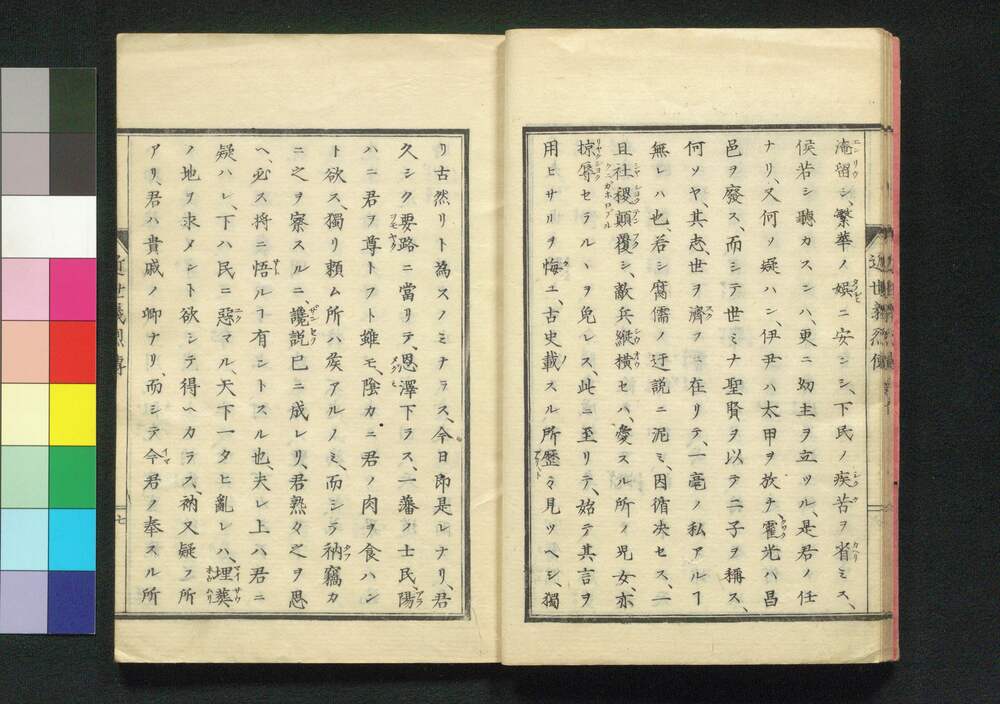 淹留シ、繁華ノ娯ニ安ンシ、下民ノ疾苦ヲ省ミス、
侯若シ聴カスンハ、更ニ幼主ヲ立ツル、是君ノ任
ナリ、又何ノ疑ハン、伊尹ハ太甲ヲ放チ、霍光ハ昌
邑ヲ廢ス、而シテ世ミナ聖賢ヲ以テ二子ヲ稱ス、
何ソヤ、其志、世ヲ濟フニ在リテ、一毫ノ私アルヿ
無レハ也、若シ腐儒ノ迂説ニ泥ミ、因循决セス、一
旦社稷顛覆シ、敵兵縱横セハ、愛スル所ノ児女、亦
掠辱セラルヽヲ免レス、此ニ至リテ、始テ其言ヲ
用ヒサルヲ悔ユ、古史載スル所歴々見ツヘシ、獨
リ古然リト為スノミナラス、今日即是レナリ、君
久シク要路ニ當リテ、恩澤下ラス、一藩ノ士民、陽
ハニ君ヲ尊トフト雖モ、陰カニ君ノ肉ヲ食ハン
ト欲ス、獨リ頼ム所ハ侯アルノミ、而シテ衲竊カ
ニ之ヲ察スルニ、讒説已ニ成レリ、君熟々之ヲ思
ヘ、必ス将ニ悟ルヿ有ントスル也、夫レ上ハ君ニ
疑ハレ、下ハ民ニ惡マル、天下一タヒ亂レハ、埋葬
ノ地ヲ求メント欲シテ得ヘカラス、衲又疑フ所
アリ、君ハ貴戚ノ卿ナリ、而シテ今君ノ奉スル所
近世義烈傳
七